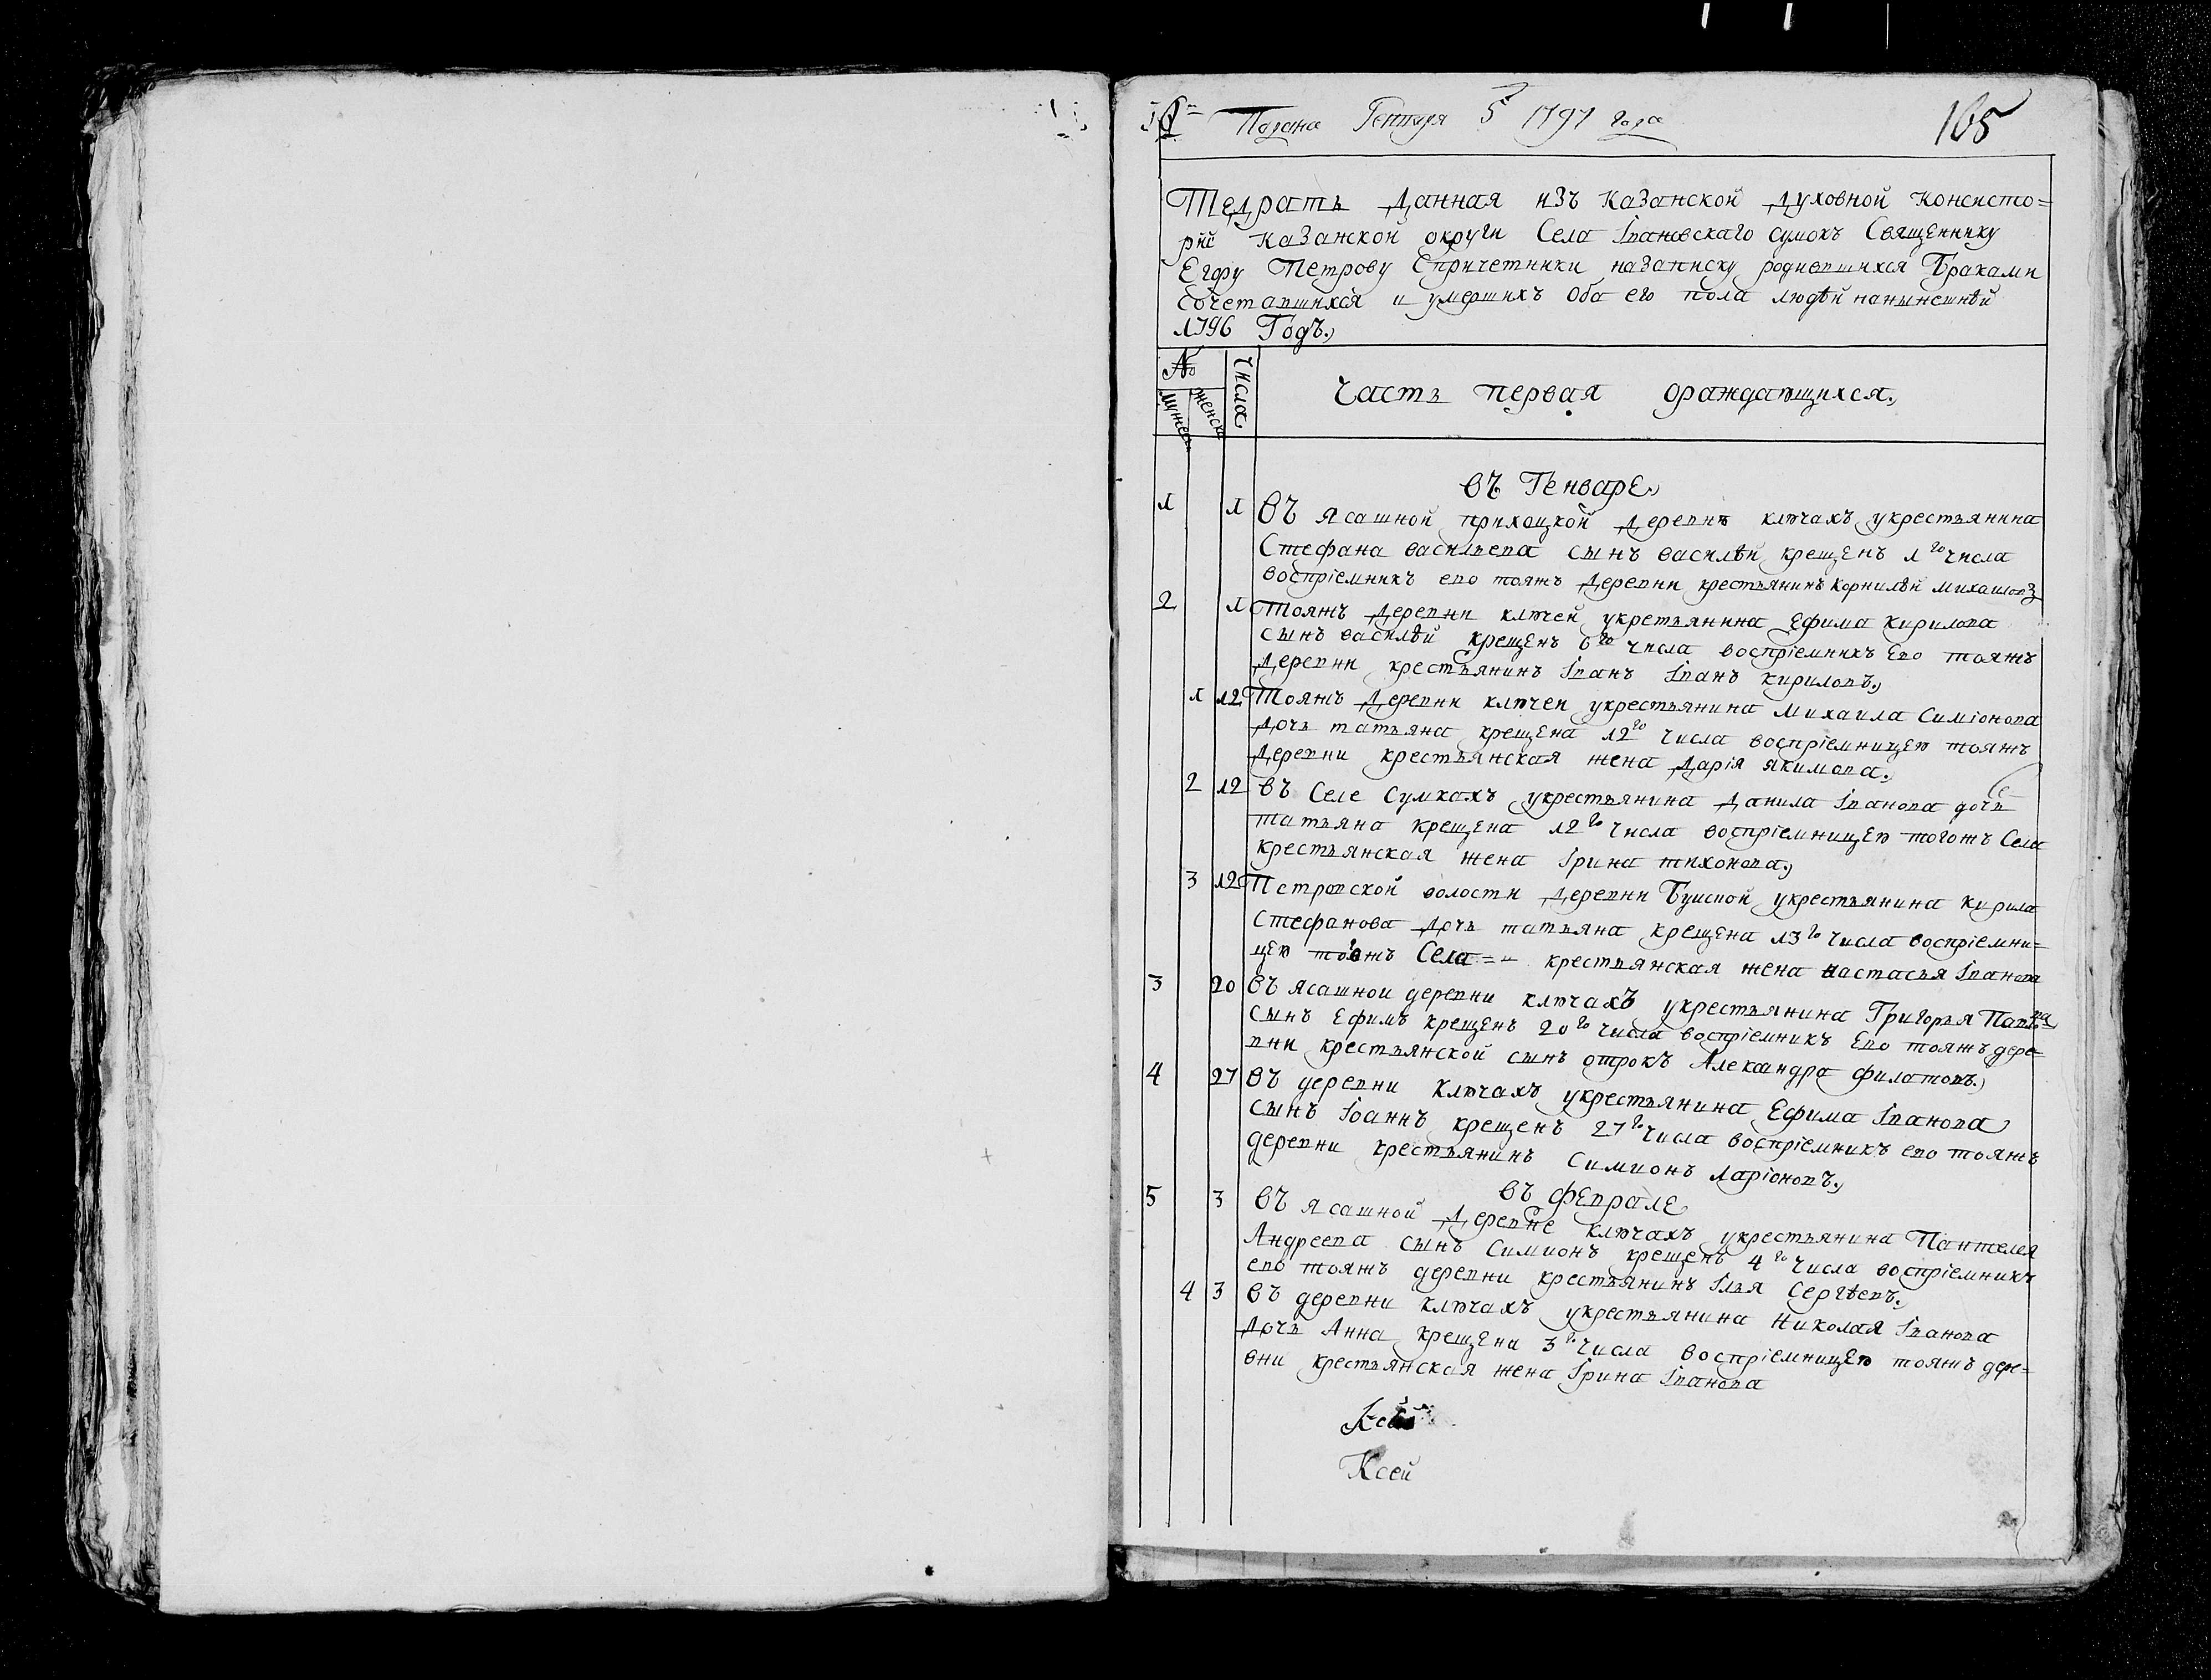 Подана Генваря 5 1797 года
165
Тедрать Данная изъ казанской духовной консисто=
рїи казанской округи Села Iвановскаго сумокъ Священнику
Егору Петрову Спричетники назаписку родившихся Браками
Сочетавшихся и умершихъ Оба его пола людѣй нанынешнѣй
1796 Годъ.
№
мужеск
женска
числа
Часть первая ораждающихся.
въ Генваре
1 1 Въ ясашной прихоцкой деревнѣ ключахъ укрестьянина
Стефана васильева сынъ василѣй крещенъ 1го числа
воспрїемникъ ево тояжъ деревни крестьянинъ Корнилѣй михаиловъ
2 1 Тояжъ деревни ключей укрестьянина Ефима кирилова
сынъ василѣй крещенъ 6го числа воспрїемникъ Ево тояжъ
деревни крестьянинъ Iванъ Iванъ кириловъ.
1 12 Тояжъ деревни ключеи укрестьянина михаила Симїонова
дочь татьяна крещена 12го числа воспрїемницею тояжъ
деревни крестьянская жена Дарїя якимова.
2 12 Въ Селе Сумкахъ укрестьянина Данила Iванова дочь
татьяна крещена 12го числа воспрїемницею тогожъ Села
крестьянская жена Iрина тихонова.
3 12 Петровской волости деревни Буиской укрестьянина кирила
Стефанова дочь татьяна крещена 13го числа воспрїемни=
цею Села== крестьянская жена настасья Iванова
3 20 Въ ясашнои деревни ключахъ укрестьянина Григорья
сынъ Ефимъ крещенъ 20го числа воспрїемникъ Ево тояжъ дере=
вни крестьянской сынъ отрокъ Александра филатовъ.
4 27 Въ деревни ключахъ укрестьянина Ефима Iванова
сынъ Iоаннъ крещенъ 27го числа воспрїемникъ ево тояжъ
деревни крестьянинъ Симионъ ларїоновъ.
въ феврале
5 3 Въ ясашной деревне ключахъ укрестьянина Пантелея
Андреева сынъ Симионъ крещенъ 4го числа воспрїемникъ
ево тояжъ деревни крестьянинъ Iлья Сергѣевъ.
4 3 Въ деревни ключахъ укрестьянина Николая Iванова
дочь Анна крещена 3го числа воспрїемницею тояжъ дере=
вни крестьянская жена Iрина Iванова
Ксей